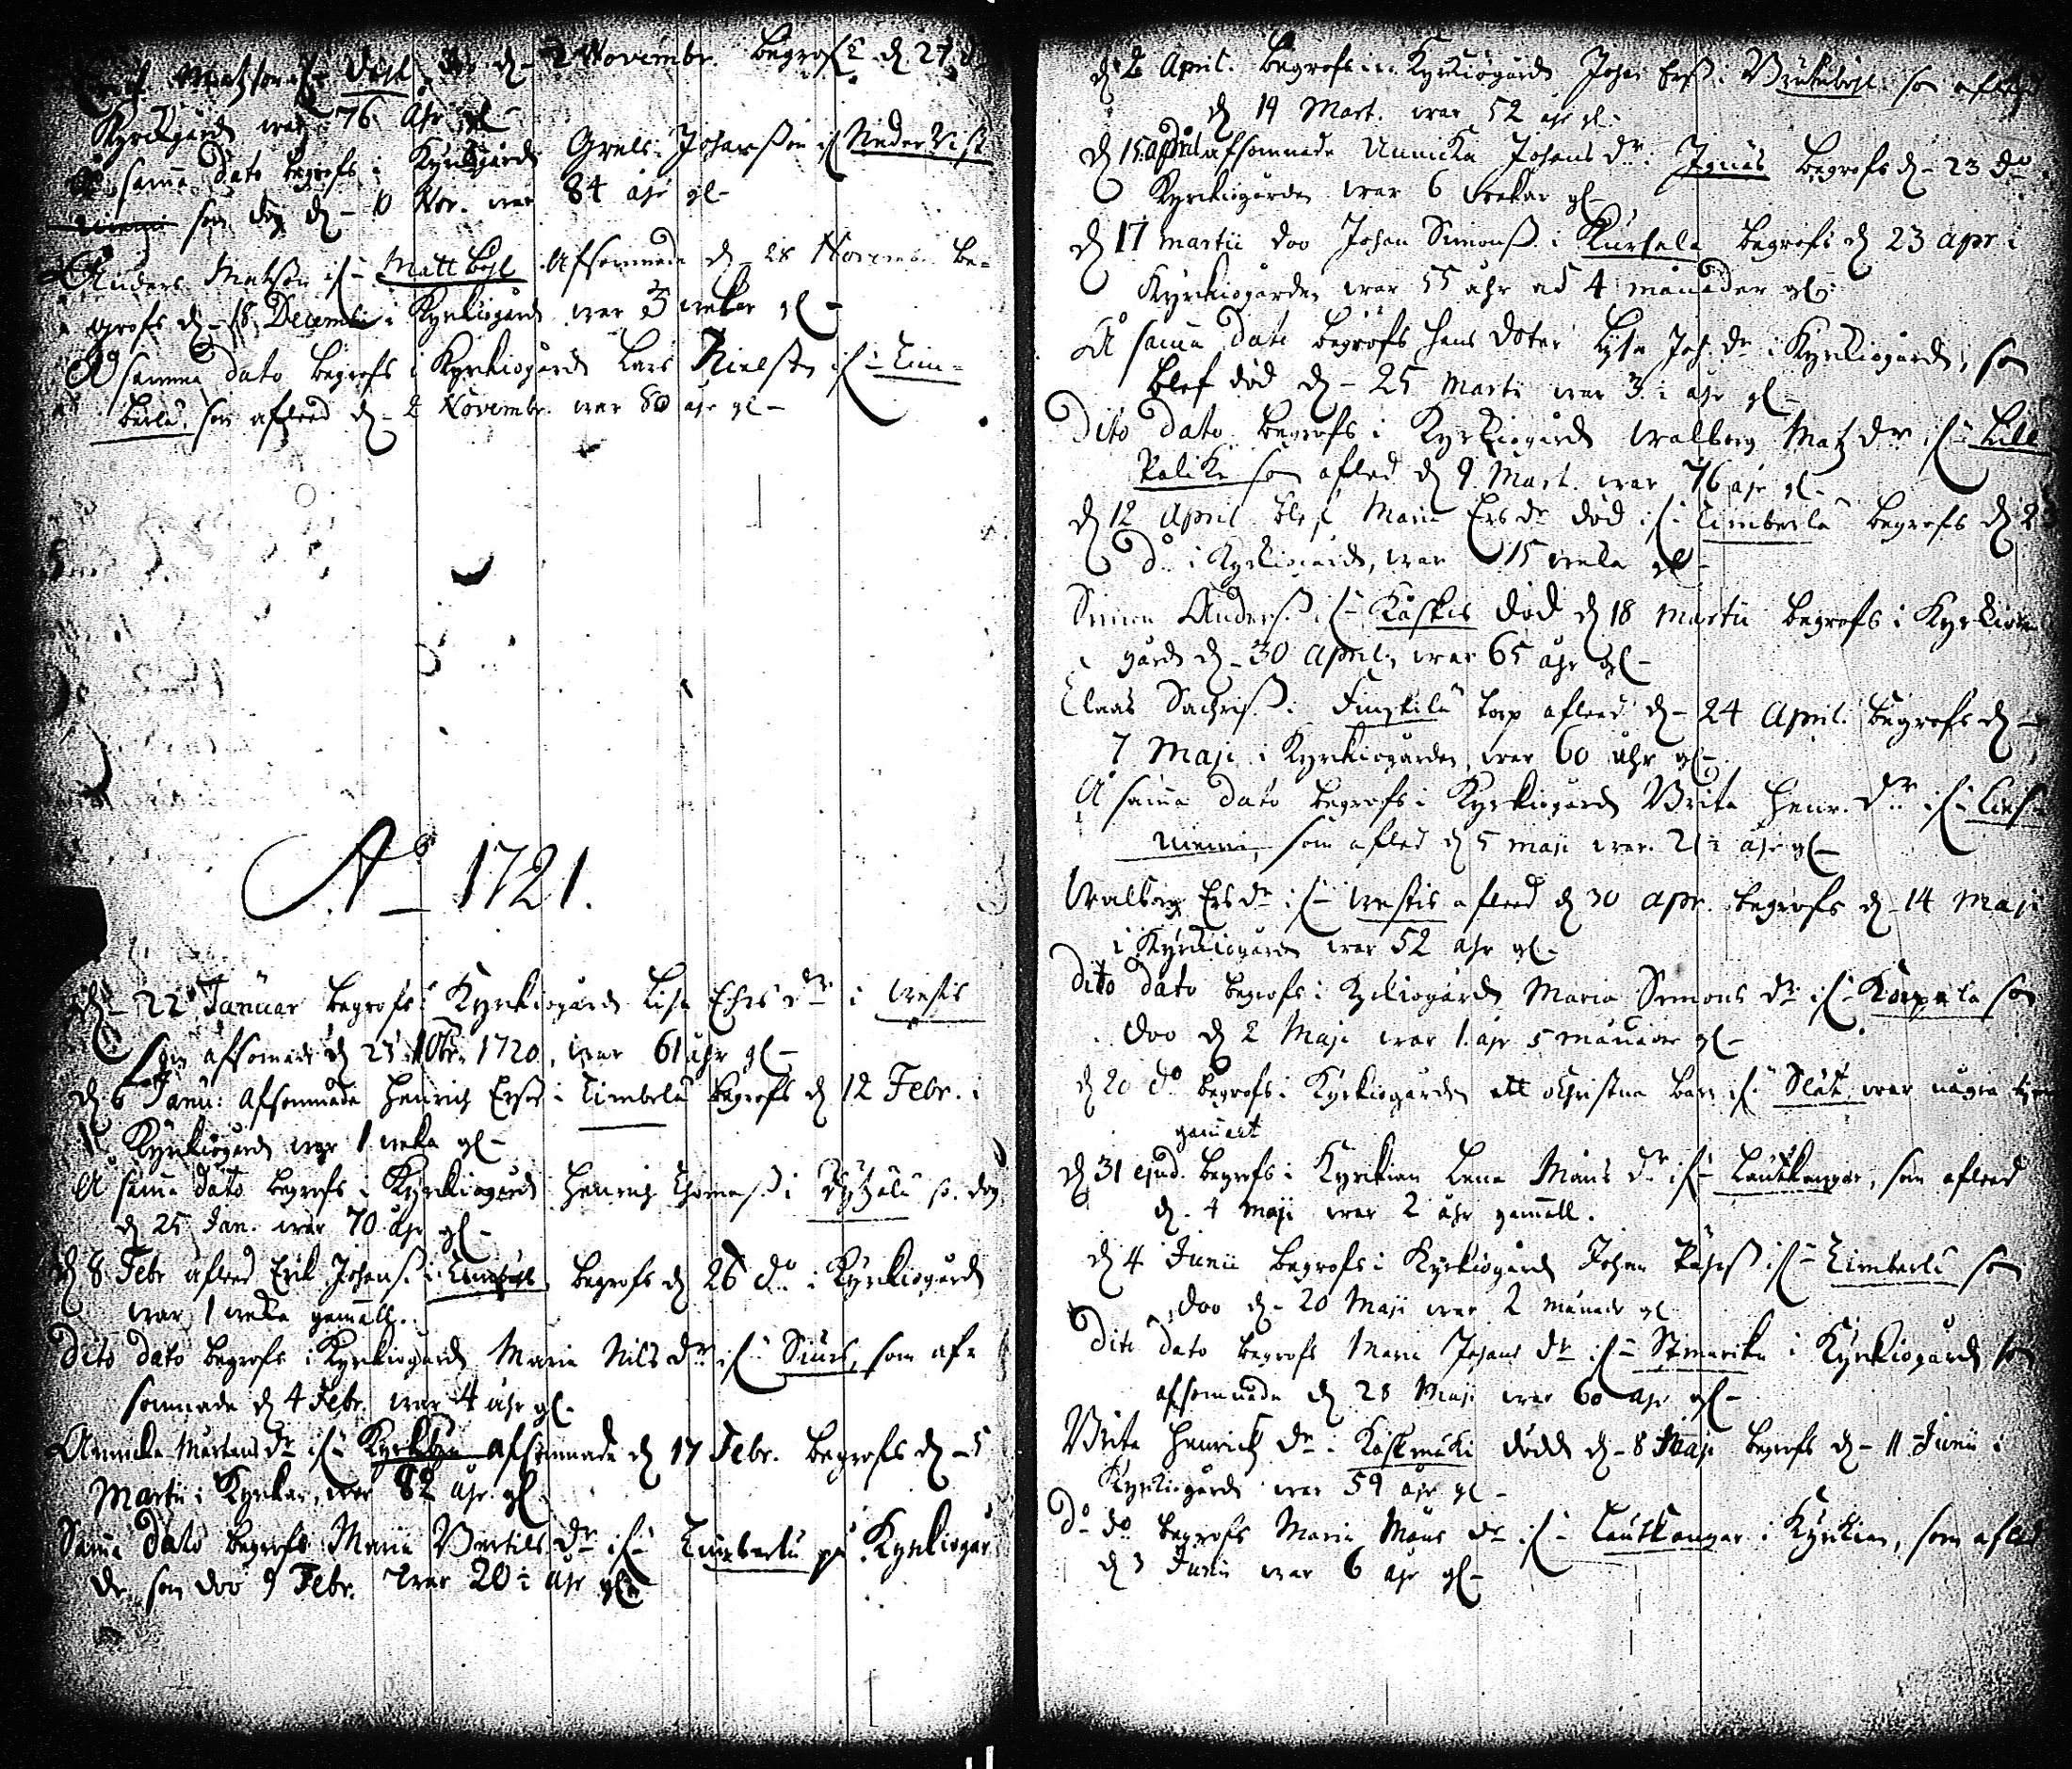 Matzson i Böhl d. 2 Novembr. begrofs d. 27
Kyrkiogård war 76 åhr gl.
samma dato begrofs i Kyrkiogård Grels Johansson i Neder Vist
niemi som dog d. 10 Nov. war 84 åhr gl.
Anders Matson i Mattböhl afsomnade d. 28 Novemb. be-
grofs d. 18 Decemb. i Kyrkiogård war 3 wekor gl.
Å samma dato begrofs i Kyrkiogård Lars Nielss. i Tim-
berla som afleed d. 2 Novembr. war 80 åhr gl.
Ao 1721.
d. 22 Januar begrofs i Kyrkiogård Lisa Ehrs dr i Westis
som afsomnade d. 25 10br. 1720, war 61 åhr gl.
d. 6 Janu: afsomnade Henrich Erss. i Timbela begrofs d. 12 Febr. i
Kyrkiogård war 1 weka gl.
Å samma dato begrofs i Kyrkiogård Henrich Thomass. i so. dog
d. 25 Jan. war 70 åhr gl.
d. 8 Febr afleed Erik Johanss. i begrofs d. 26 do i Kyrkiogård
war 1 weka gamall.
Dito dato begrofs i Kyrkiogård Maria Nils dr i Siuis, som af-
somnade d. 4 Febr. war 4 åhr gl.
Annicka Mårtens dr i Kyrkbyn afsomnade d. 17 Febr. begrofs d. 5
Martii i Kyrkan, war 82 åhr gl.
Samma dato begrofs Maria Bertils dr i Timberla på Kyrkiogår
de, som doo 9 Febr. war 20 åhr gl.
d. 2 April. begrofs i Kyrkiogård Johan Erss. i Brinkeböhl som
d. 19 Mart. war 52 åhr gl.
d. 15 april afsomnade Annika Johans dr i Ignäs begrofs d. 23 do
Kyrkiogården war 6 wekar gl.
d. 17 martii doo Johan Simonss. i Kursela begrofs d. 23 apr i
Kyrkiogården war 55 åhr ad 4 månader gl.
Å samma dato begrofs hans doter Lysa Joh. dr i Kyrkiogård, som
blef död d. 25 Marti war 3 åhr gl.
Dito dato begrofs i Kyrkiogård Walborg Matz dr i Lill
Palike som afled d. 9. Mart. war 76 åhr gl.
d. 12 April blef Maria Ers dr död i Timberla begrofs d. 23
do i Kyrkiogård, war 15 weka gl.
Simon Anderss. i Kaskis död d. 18 Martii begrofs i Kyrkio
gård d. 30 April, war 65 åhr gl.
Claas Sachriss. i Finskila torp afleed d. 24 April. begrofs d.
7 Maji i Kyrkiogården, war 60 åhr gl.
Å samma dato begrofs i Kyrkiogård Brita Henr. dr i
niemi, som afled d. 5 maji war åhr gl.
Walborg Ers dr i Westis afleed d. 30 Apr. begrofs d. 14 Maji
i Kyrkiogården war 52 åhr gl.
Dito dato begrofs i Kyrkiogård Maria Simons dr i Korpela som
doo d. 2 Maji war 1. åhr 5 månader gl.
d. 20 do begrofs i Kyrkiogården ett Christna barn i Slät war några
gamalt
d. 31 ejusd. begrofs i Kyrkian Lena Måns dr i Lautkangar, som afleed
d. 4 maji war 2 åhr gamall.
d. 4 Junii begrofs i Kyrkiogård Johan i Timberla som
doo d. 20 Maji war 2 månader gl
Dito dato begrofs Maria Johans dr i Stmarika i Kyrkiogård som
afsomnade d. 28 Maji war 60 åhr gl.
Brita Henrichz dr i Kaskmäki dödde d. 8 Maji begrofs d. 11 Junii i
Kyrkiogård war 59 åhr gl.
do do begrofs Maria Måns dr i Lautkangar i Kyrkian, som afled
d. 3 Junii war 6 åhr gl.